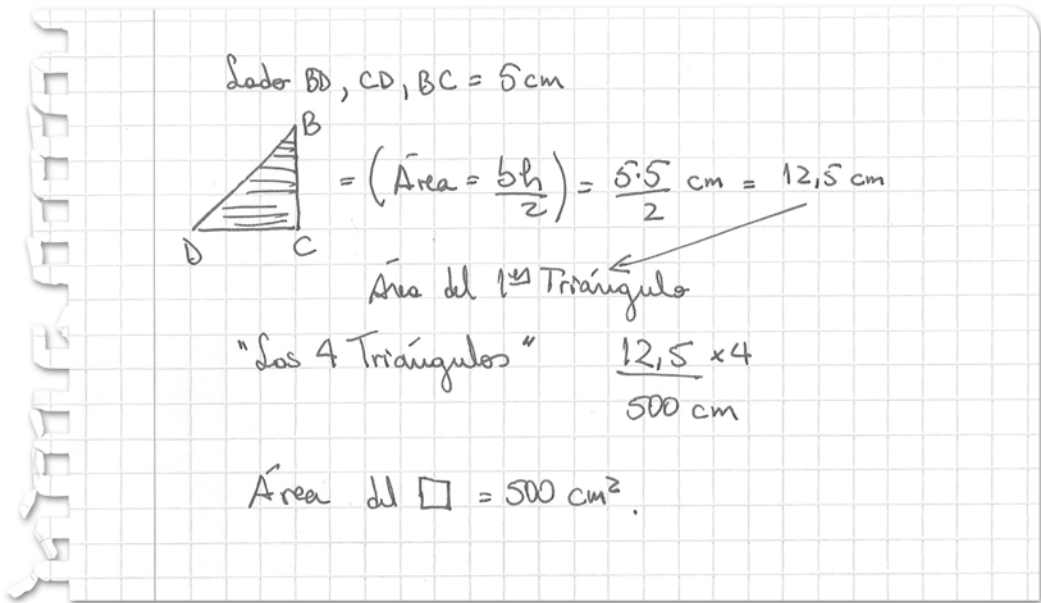 Lados BD, CD, BC = 5 cm
B
= (Área = bh/2) = 5·5/2 cm = 12,5 cm
D C
Área del 1er Triángulo
"Los 4 Triángulos" 12,5 x4
500 cm
Área del □ = 500 cm².